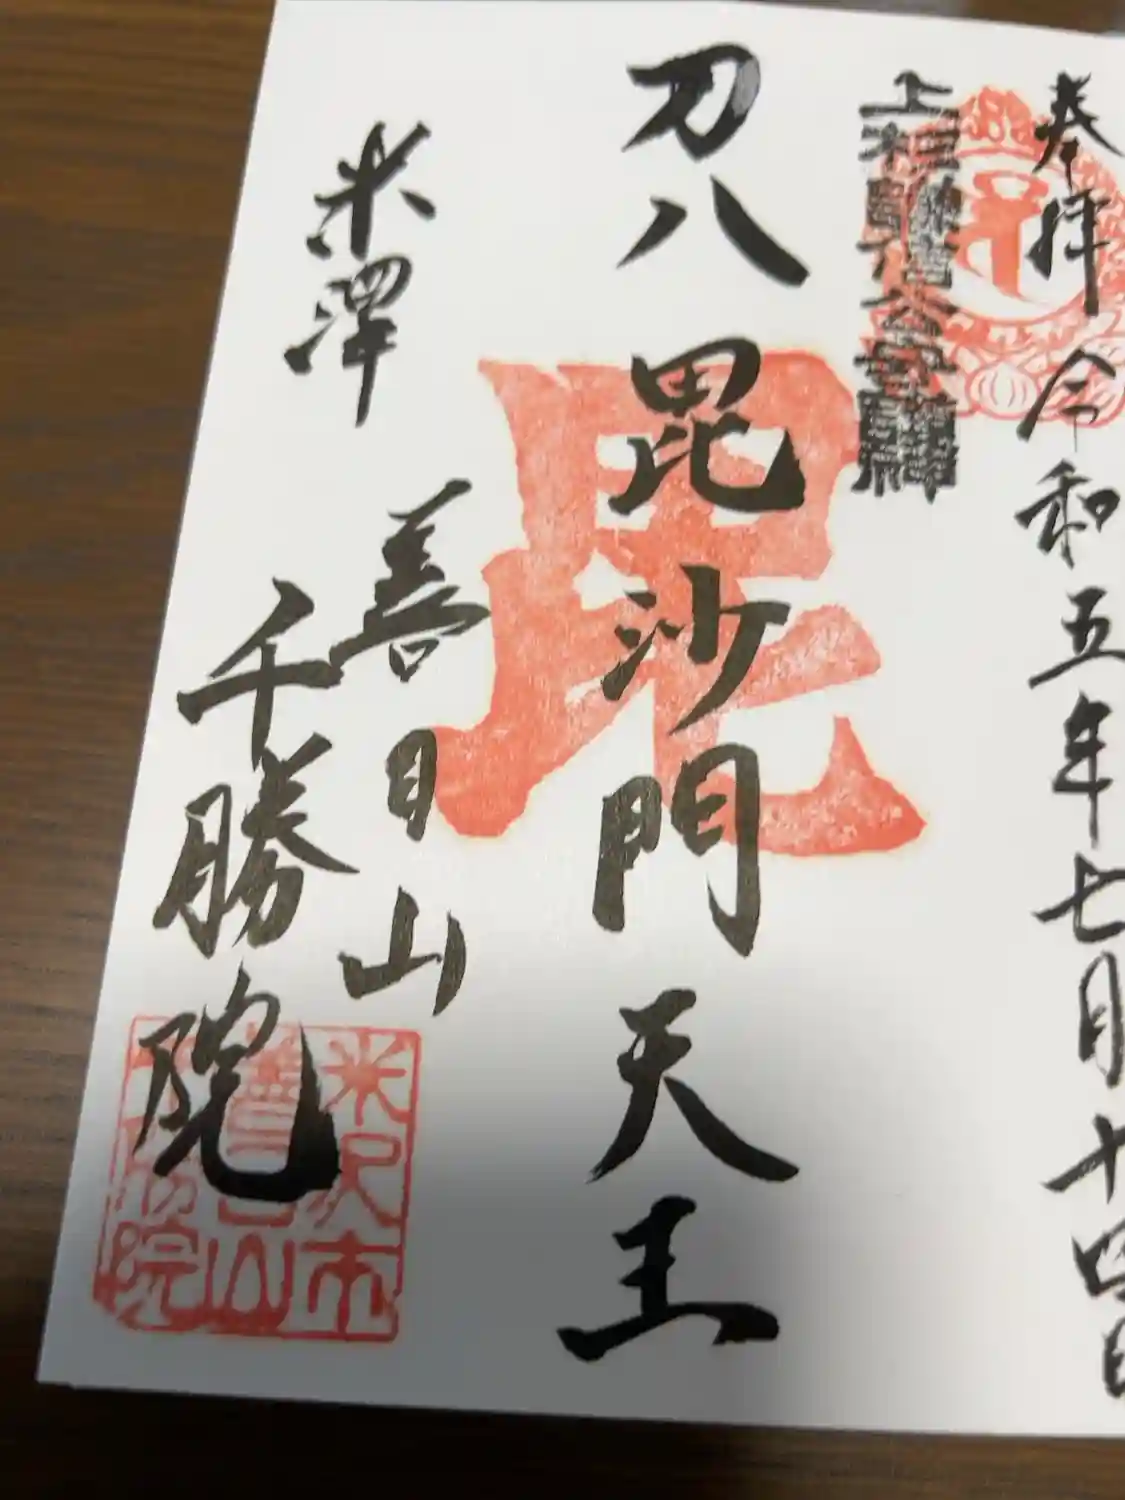 奉拝 令和五年七月十四日
刀八毘沙門天王
毘
米澤
善日山
千勝院
米沢市
善日山
千勝院